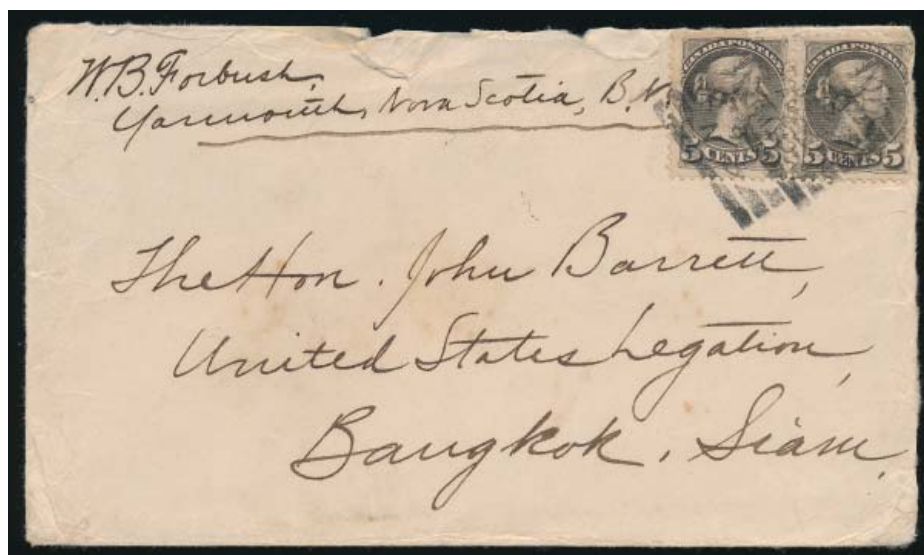 W.B. Forbush,
Yarmouth, Nova Scotia, B.N.
CANADA POSTAGE
5 CENTS 5
CANADA POSTAGE
5 CENTS 5
The Hon. John Barrett,
United States Legation,
Bangkok, Siam.